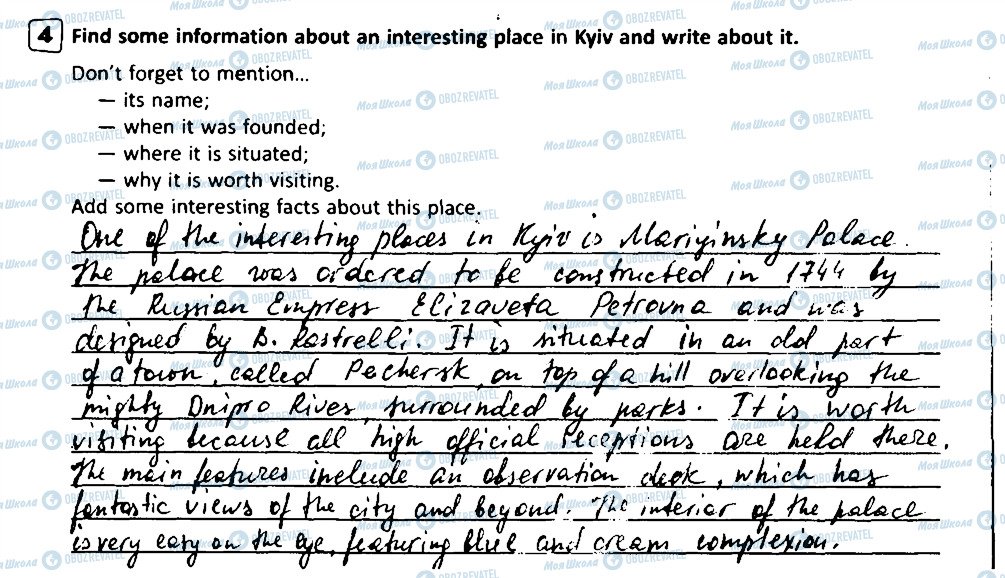 4 Find some information about an interesting place in Kyiv and write about it.
Don't forget to mention...
— its name;
— when it was founded;
— where it is situated;
— why it is worth visiting.
Add some interesting facts about this place.
One of the interesting places in Kyiv is Mariyinsky Palace.
The palace was ordered to be constructed in 1744 by
the Russian Empress Elizaveta Petrovna and was
designed by B. Rastrelli. It is situated in an old part
of a town, called Pechersk, on top of a hill overlooking the
mighty Dnipro River, surrounded by parks. It is worth
visiting because all high official receptions are held there.
The main features include an observation deck, which has
fantastic views of the city and beyond. The interior of the palace
is very easy on the eye, featuring blue and cream complexion.
МояШкола OBOZREVATEL